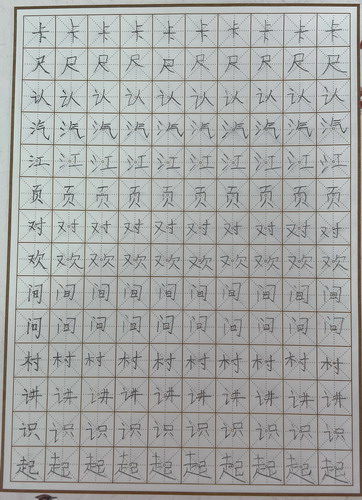 卡卡卡卡卡卡卡卡卡卡
尺尺尺尺尺尺尺尺尺尺
认认认认认认认认认认
汽汽汽汽汽汽汽汽汽汽
江江江江江江江江江江
页页页页页页页页页页
对对对对对对对对对对
欢欢欢欢欢欢欢欢欢欢
间间间间间间间间间间
问问问问问问问问问问
村村村村村村村村村村
讲讲讲讲讲讲讲讲讲讲
识识识识识识识识识识
起起起起起起起起起起